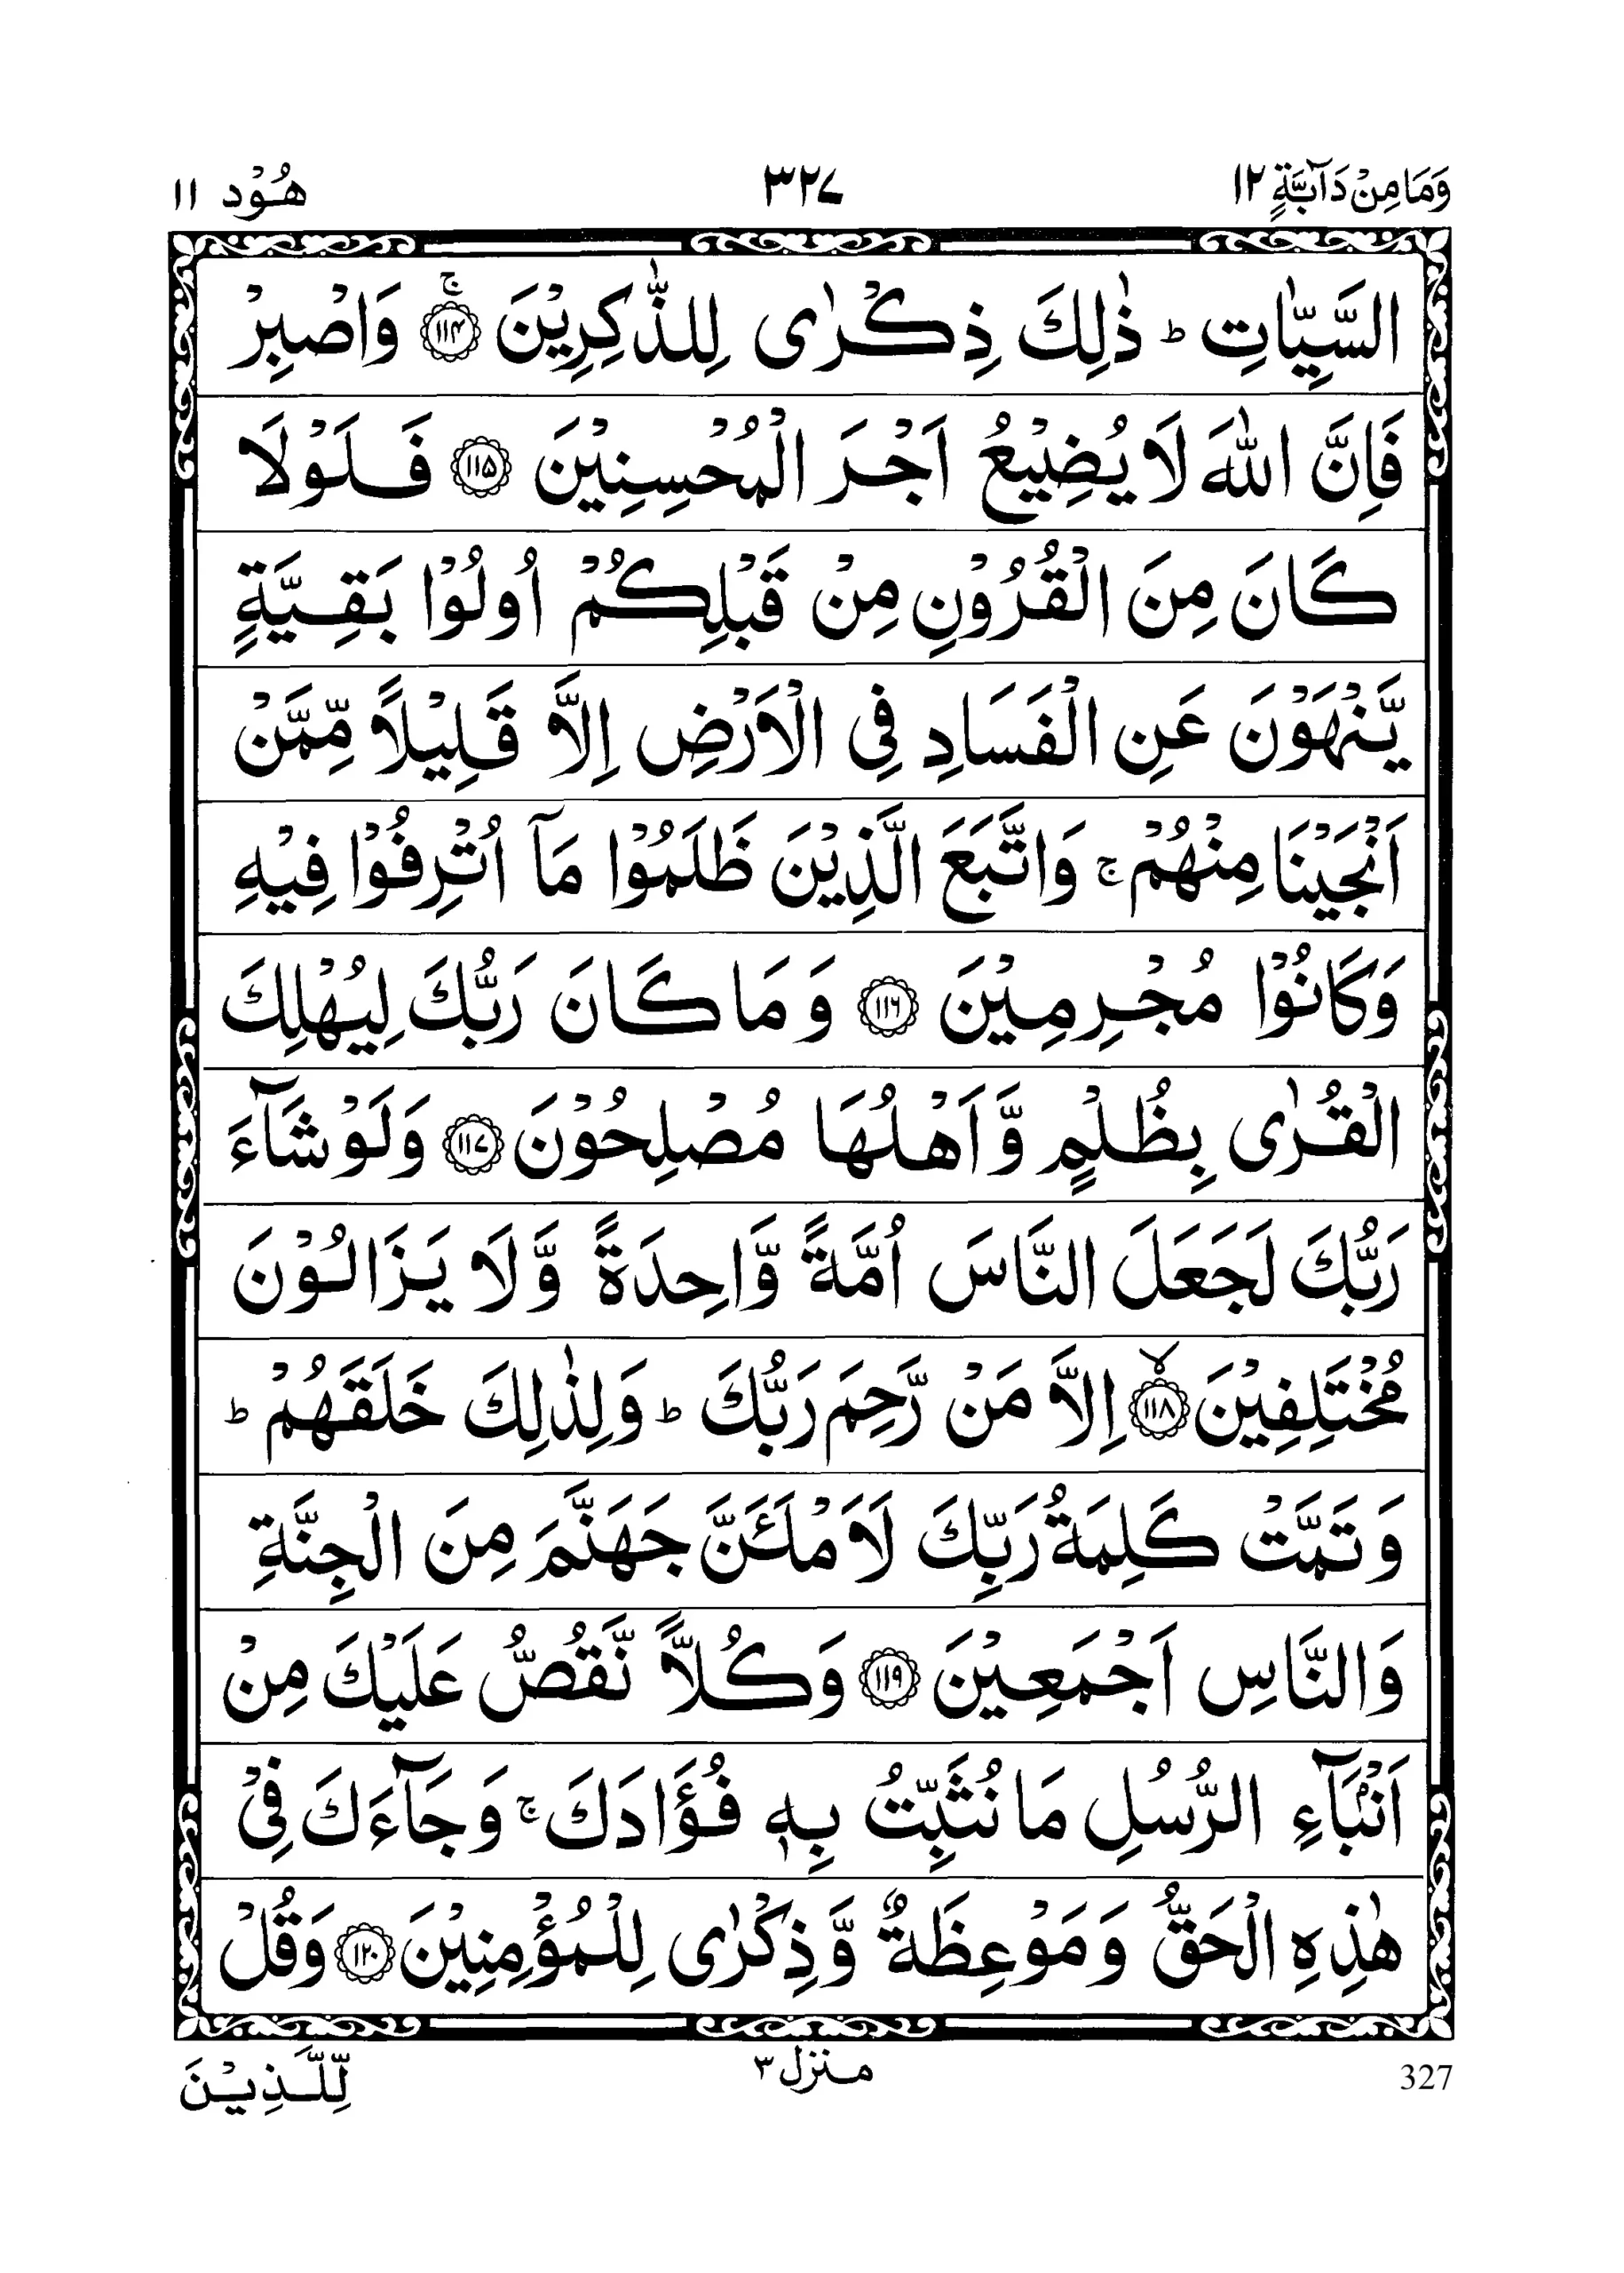 وَمَا مِنْ دَآبَّةٍ ١٢ ٣٢٧ هُوْد ١١
السَّيِّاٰتِ ؕ ذٰلِكَ ذِكْرٰى لِلذّٰكِرِيْنَ ۚ﴿۱۱۴﴾ وَاصْبِرْ
فَاِنَّ اللّٰهَ لَا يُضِيْعُ اَجْرَ الْمُحْسِنِيْنَ ﴿۱۱۵﴾ فَلَوْلَا
كَانَ مِنَ الْقُرُوْنِ مِنْ قَبْلِكُمْ اُولُوْا بَقِيَّةٍ
يَّنْهَوْنَ عَنِ الْفَسَادِ فِى الْاَرْضِ اِلَّا قَلِيْلًا مِّمَّنْ
اَنْجَيْنَا مِنْهُمْ ۚ وَاتَّبَعَ الَّذِيْنَ ظَلَمُوْا مَآ اُتْرِفُوْا فِيْهِ
وَكَانُوْا مُجْرِمِيْنَ ﴿۱۱۶﴾ وَمَا كَانَ رَبُّكَ لِيُهْلِكَ
الْقُرٰى بِظُلْمٍ وَّاَهْلُهَا مُصْلِحُوْنَ ﴿۱۱۷﴾ وَلَوْ شَآءَ
رَبُّكَ لَجَعَلَ النَّاسَ اُمَّةً وَّاحِدَةً وَّلَا يَزَالُوْنَ
مُخْتَلِفِيْنَ ۙ﴿۱۱۸﴾ اِلَّا مَنْ رَّحِمَ رَبُّكَ ؕ وَلِذٰلِكَ خَلَقَهُمْ ؕ
وَتَمَّتْ كَلِمَةُ رَبِّكَ لَاَمْلَئَنَّ جَهَنَّمَ مِنَ الْجِنَّةِ
وَالنَّاسِ اَجْمَعِيْنَ ﴿۱۱۹﴾ وَكُلًّا نَّقُصُّ عَلَيْكَ مِنْ
اَنْۢبَآءِ الرُّسُلِ مَا نُثَبِّتُ بِهٖ فُؤَادَكَ ۚ وَجَآءَكَ فِىْ
هٰذِهِ الْحَقُّ وَمَوْعِظَةٌ وَّذِكْرٰى لِلْمُؤْمِنِيْنَ ﴿۱۲۰﴾ وَقُلْ
327 منزل ٣ لِّلَّذِيْنَ